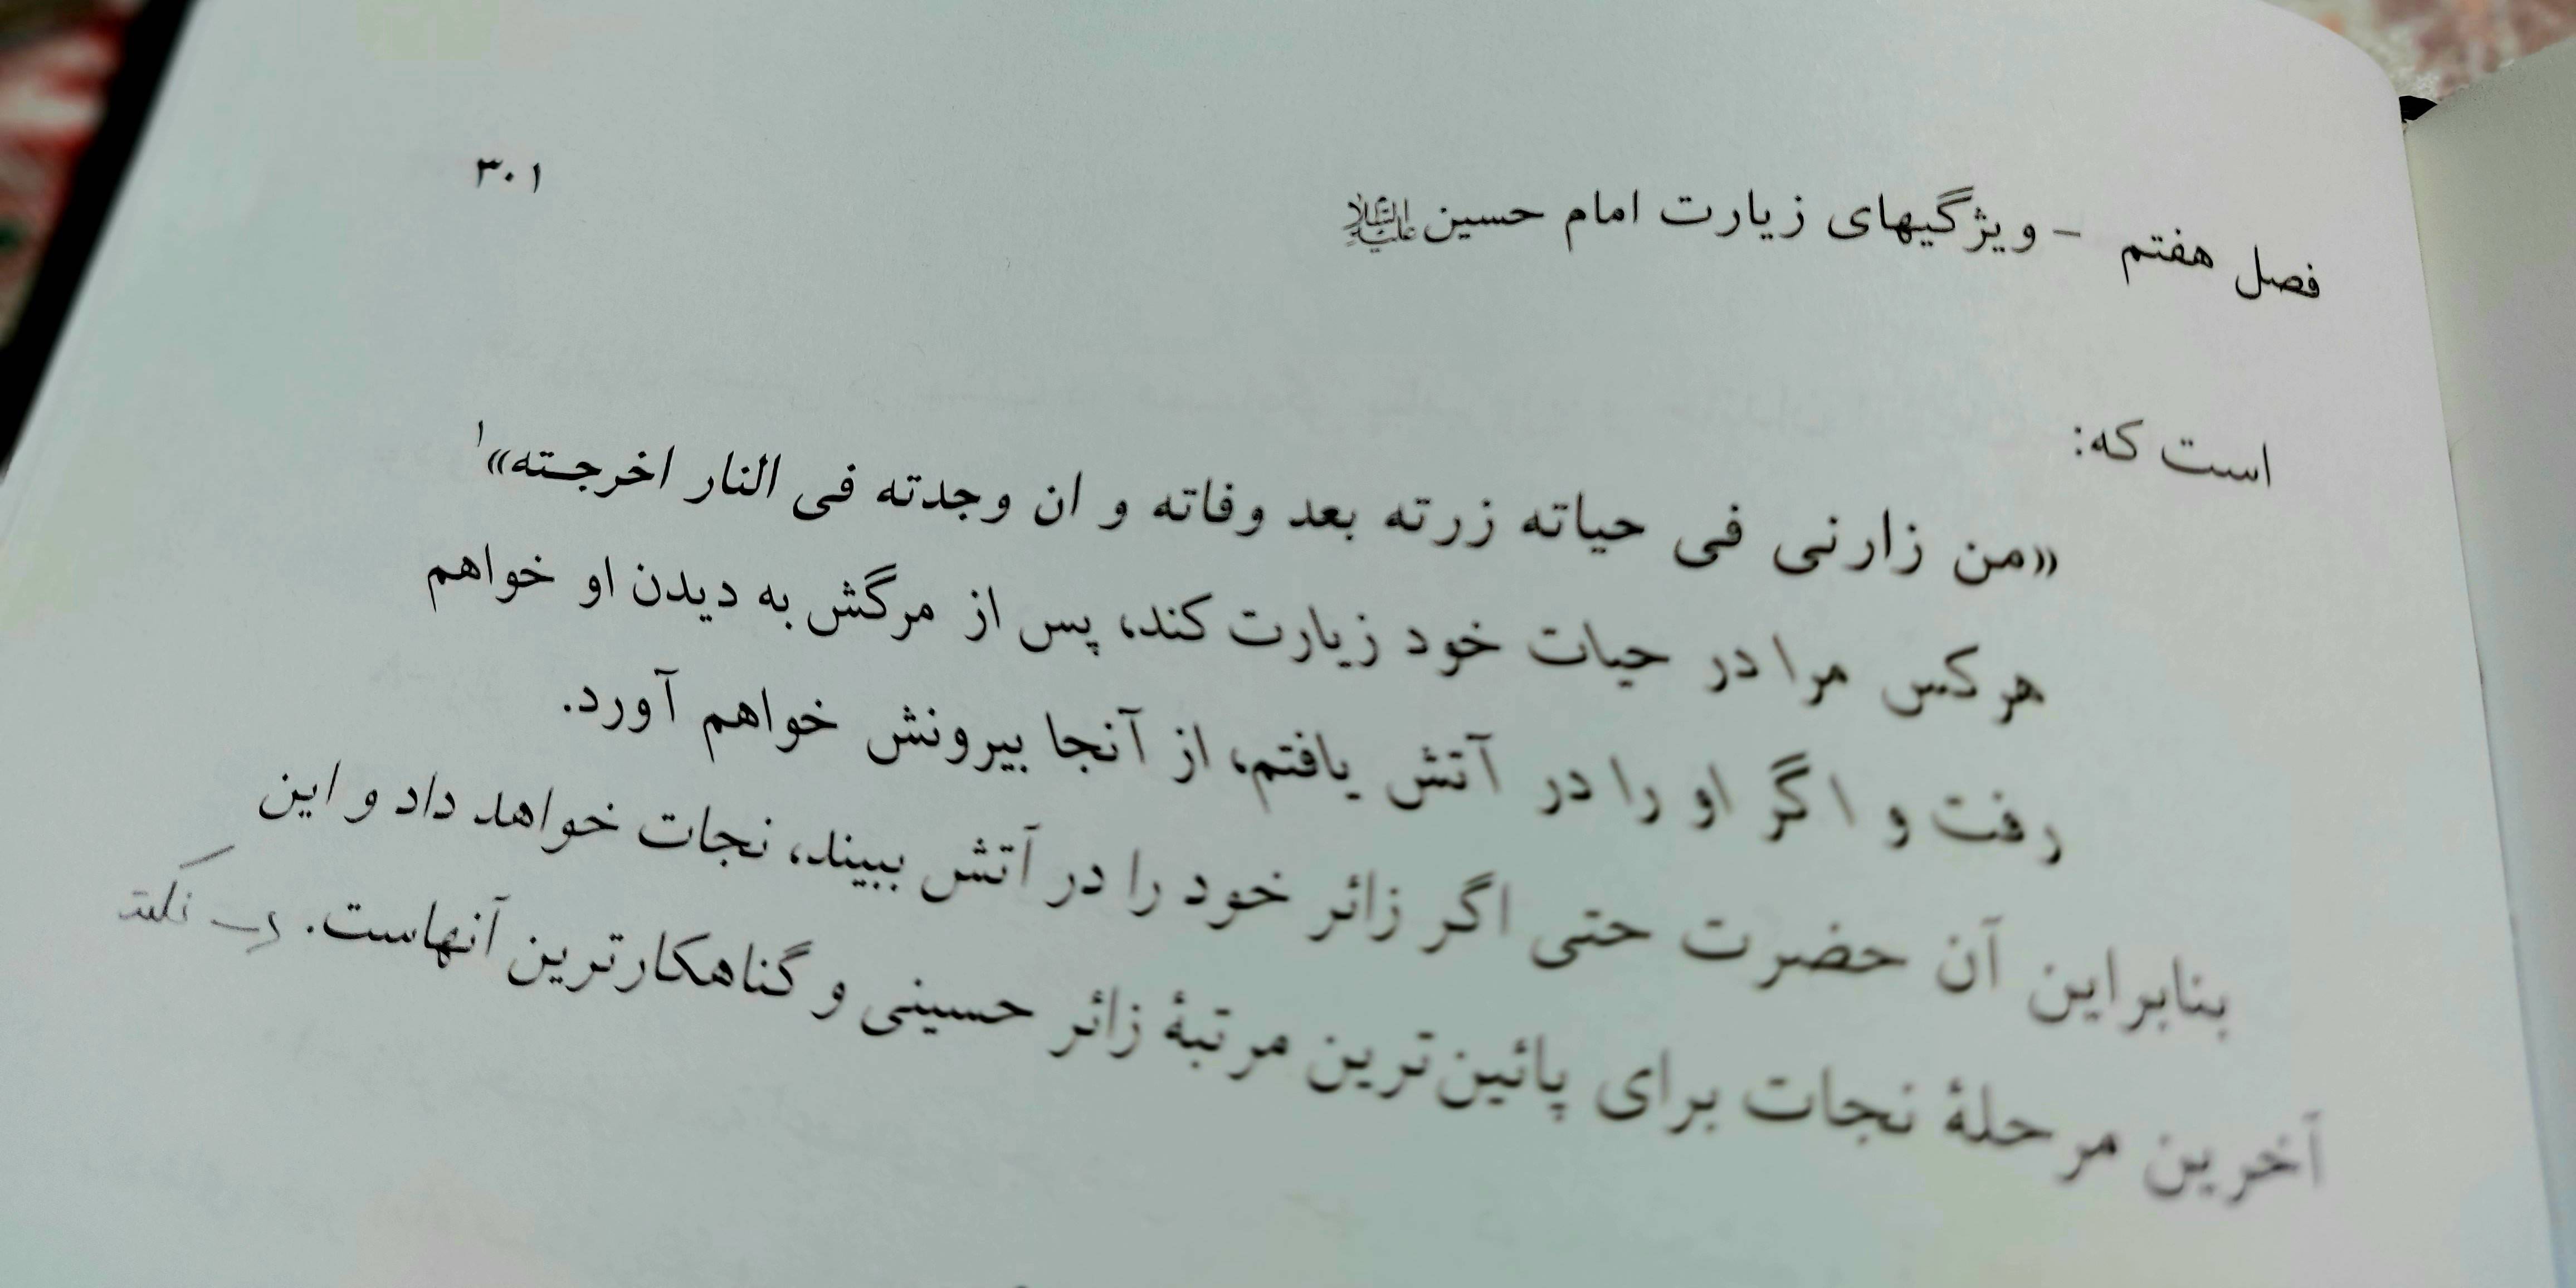 فصل هفتم - ویژگیهای زیارت امام حسین علیه‌السلام ۳۰۱
است که:
«من زارنی فی حیاته زرته بعد وفاته و ان وجدته فی النار اخرجته»۱
هر کس مرا در حیات خود زیارت کند، پس از مرگش به دیدن او خواهم
رفت و اگر او را در آتش یافتم، از آنجا بیرونش خواهم آورد.
بنابراین آن حضرت حتی اگر زائر خود را در آتش ببیند، نجات خواهد داد و این
آخرین مرحلهٔ نجات برای پائین‌ترین مرتبهٔ زائر حسینی و گناهکارترین آنهاست.